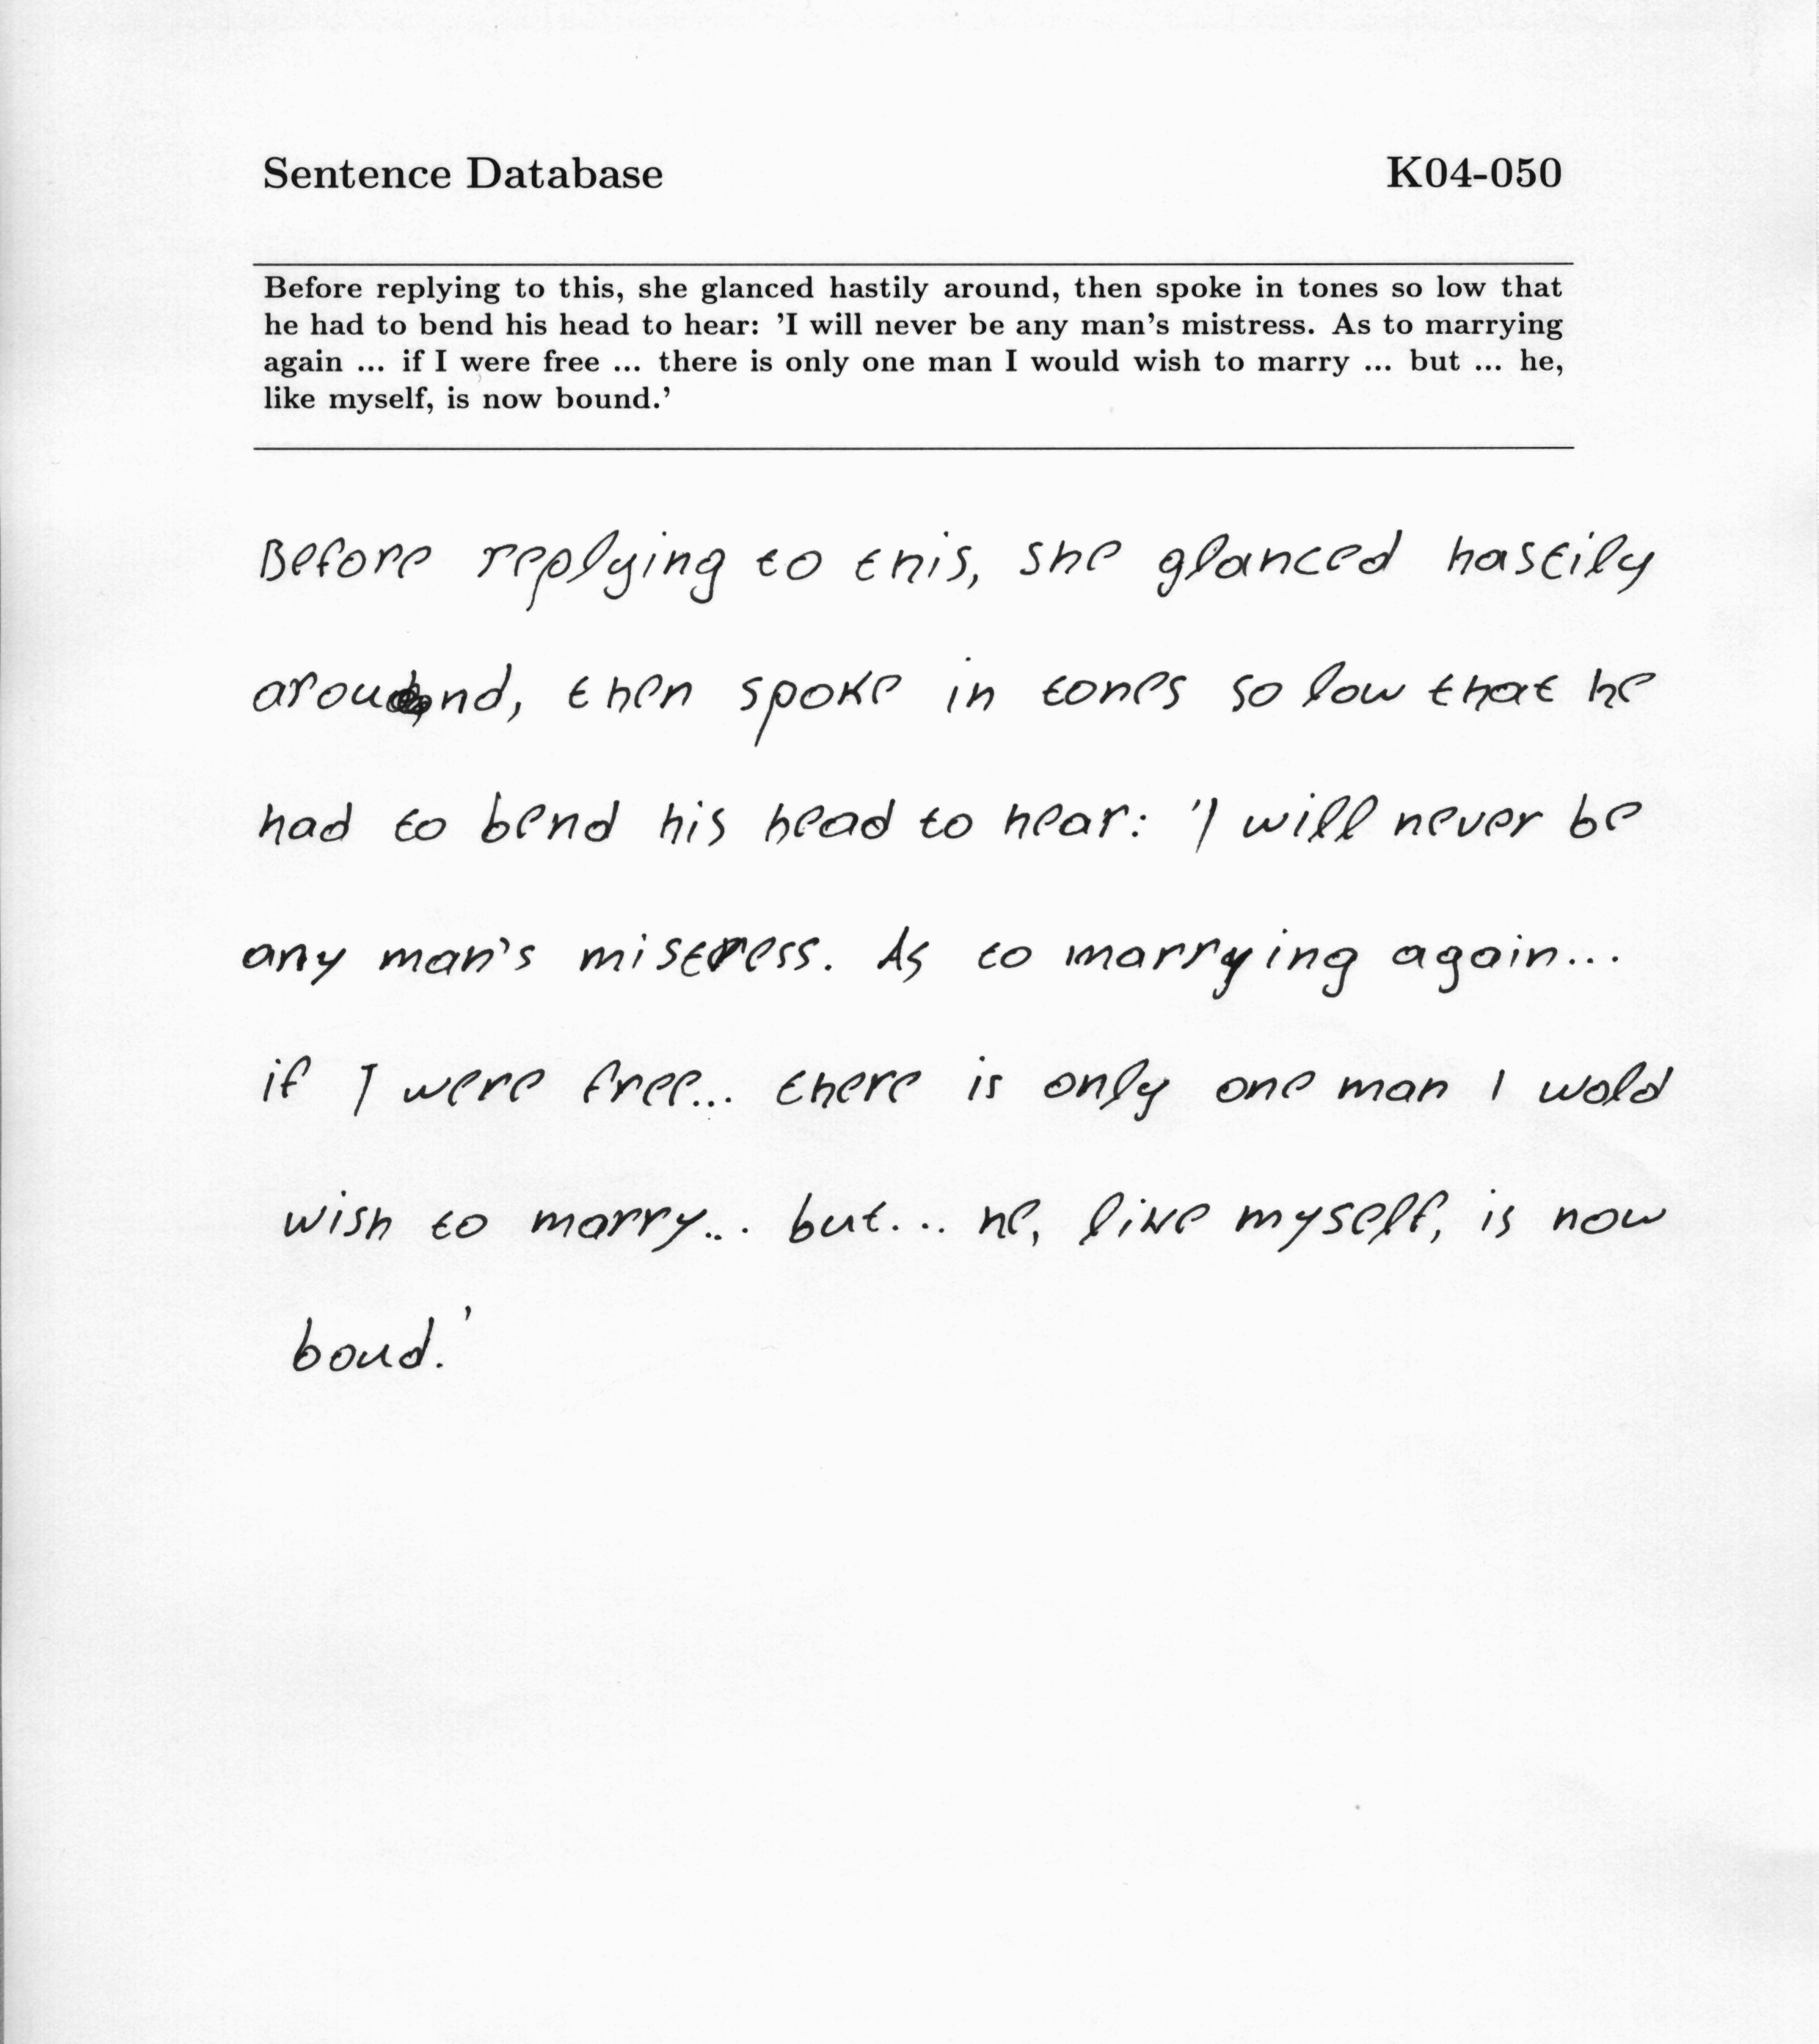 Sentence Database K04-050
Before replying to this, she glanced hastily around, then spoke in tones so low that
he had to bend his head to hear: 'I will never be any man's mistress. As to marrying
again ... if I were free ... there is only one man I would wish to marry ... but ... he,
like myself, is now bound.'
Before replying to this, she glanced hastily
around, then spoke in tones so low that he
had to bend his head to hear: 'I will never be
any man's mistress. As to marrying again...
if I were free... there is only one man I wold
wish to marry... but... he, like myself, is now
boud.'